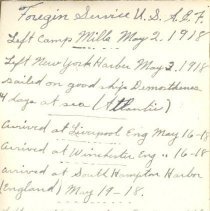 Foregin Service U.S. A.E.F.
Left Camp Mills May 2. 1918
Left New York Harbor May 3. 1918
sailed on good ship Demosthenes
4 days at sea (Atlantic)
Arrived at Liverpool Eng May 16-18
Arrived at Winchester Eng " 16-18
arrived at South Hampton Harbor
(England) May 19-18.